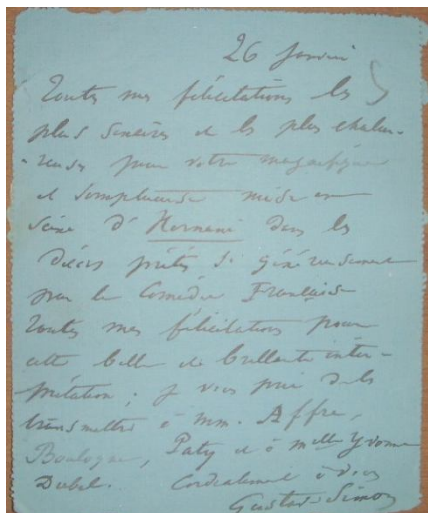 26 Janvier
Toutes mes félicitations les
plus sincères et les plus chaleu-
-reuses pour votre magnifique
et somptueuse mise en
scène d'Hernani dans les
décors prêtés si généreusement
par la Comédie Française
Toutes mes félicitations pour
cette belle et brillante inter-
prétation ; je vous prie de les
transmettre à MM. Affre,
Boulogne, Paty et à Melle Yvonne
Dubel. Cordialement à vous
Gustave Simon